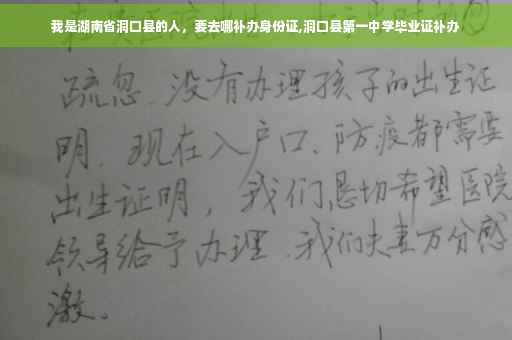 我是湖南省洞口县的人，要去哪补办身份证,洞口县第一中学毕业证补办
疏忽、没有办理孩子的出生证
明、现在入户口、防疫都需要
出生证明，我们恳切希望医院
领导给予办理、我们夫妻万分感
激。